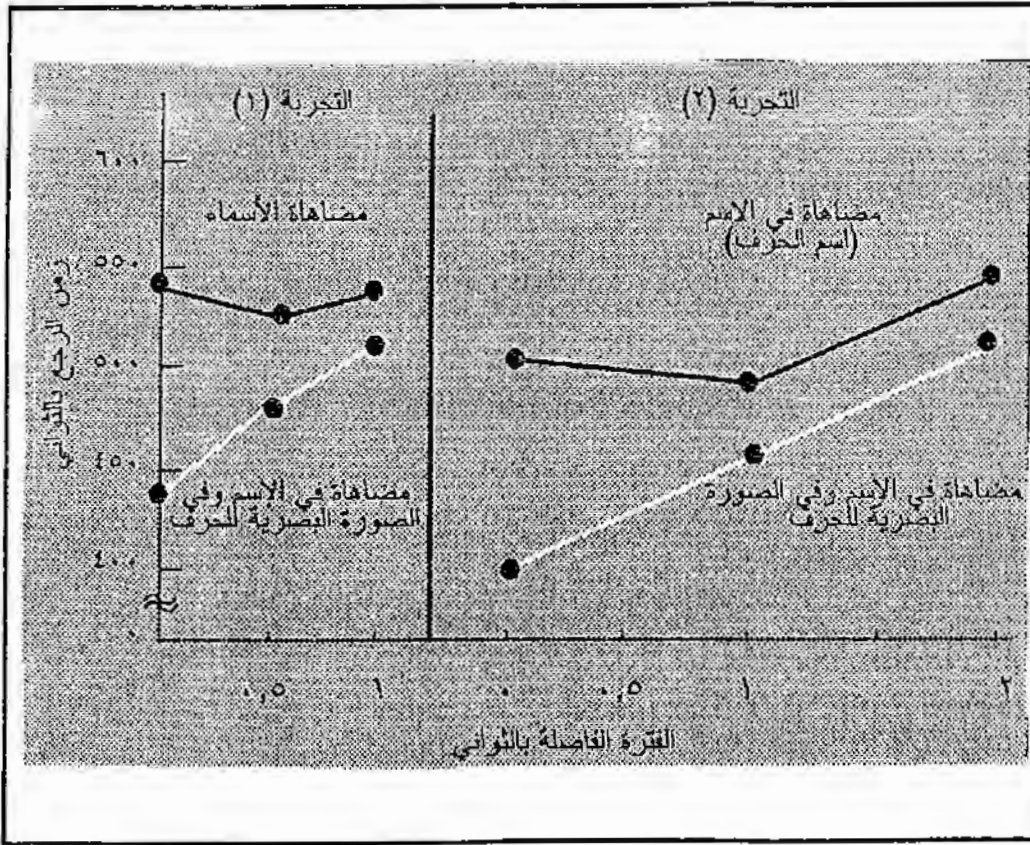 التجربة (١)
التجربة (٢)
٦٠٠
٥٥٠
٥٠٠
٤٥٠
٤٠٠
٠
زمن الرجع بالثواني
مضاهاة الأسماء
مضاهاة في الاسم وفي
الصورة البصرية للحرف
مضاهاة في الاسم
(اسم الحرف)
مضاهاة في الإسم وفي الصورة
البصرية للحرف
٠,٥
١
٠
٠,٥
١
٢
الفترة الفاصلة بالثواني